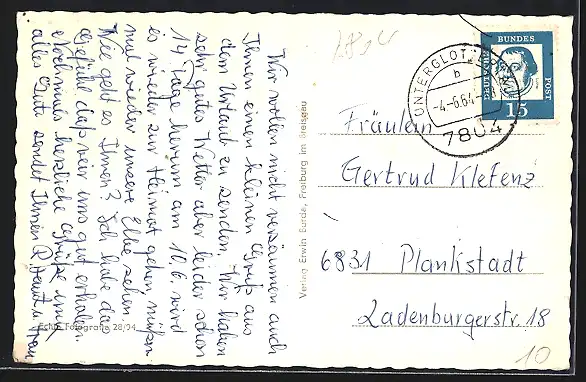 Wir wollen nicht versäumen auch
Ihnen einen kleinen Gruß aus
dem Urlaub zu senden. Wir haben
sehr gutes Wetter aber leider schon
14 Tage herum am 10.6. wird
es wieder zur Heimat gehen müßen
mal wieder unsere Elke sehen.
Wie geht es Ihnen? Ich habe das
Gefühl daß wir uns gut erholen.
Nochmals herzliche Grüße und
alles Gute sendet Ihnen
Echte Fotografie 28/94
Verlag Erwin Burda, Freiburg im Breisgau
DEUTSCHE
BUNDES
POST
15
UNTERGLOTTERTAL
b
-4.-6.64.-
7804
Fräulein
Gertrud Klefenz
6831 Plankstadt
Ladenburgerstr. 18
10